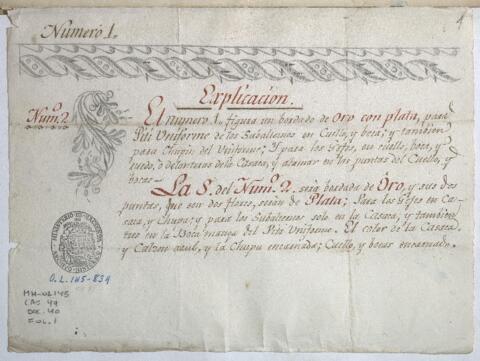 Numero 1.
4
Explicacion.
Num.º 2.
El numero 1.º figura un bordado de Oro con plata, para
Piti Uniforme de los Subalternos en Cuello, y bota; y tambien
para Chupin del Uniforme; Y para los Gefes, en cuello, bota, y
ruedo, o delanteras de la Casaca, y alamar en las puntas del Cuello, y
botas.
La S. del Num.º 2. será bordada de Oro, y sus dos
puntas, que son dos flores, serán de Plata; Para los Gefes en Ca-
saca, y Chupa; y para los Subalternos solo en la Casaca; y tambien
en la Boca manga del Piti Uniforme. El color de la Casaca
y Calzon azul, y la Chupa encarnada; Cuello, y botas encarnado.
O.L. 145-834
MH-02145
CAS 44
DOC. 40
FOL. 1